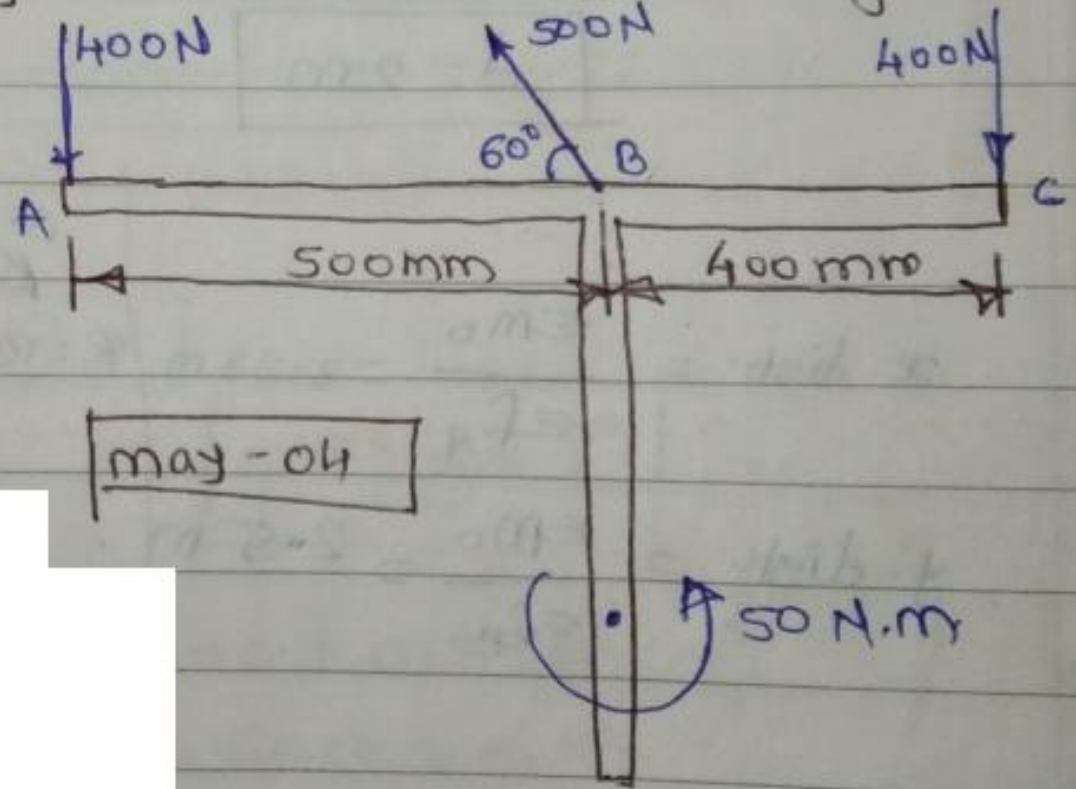 400N 500N 400N
60° B
A C
500mm 400mm
may-04
50 N.m